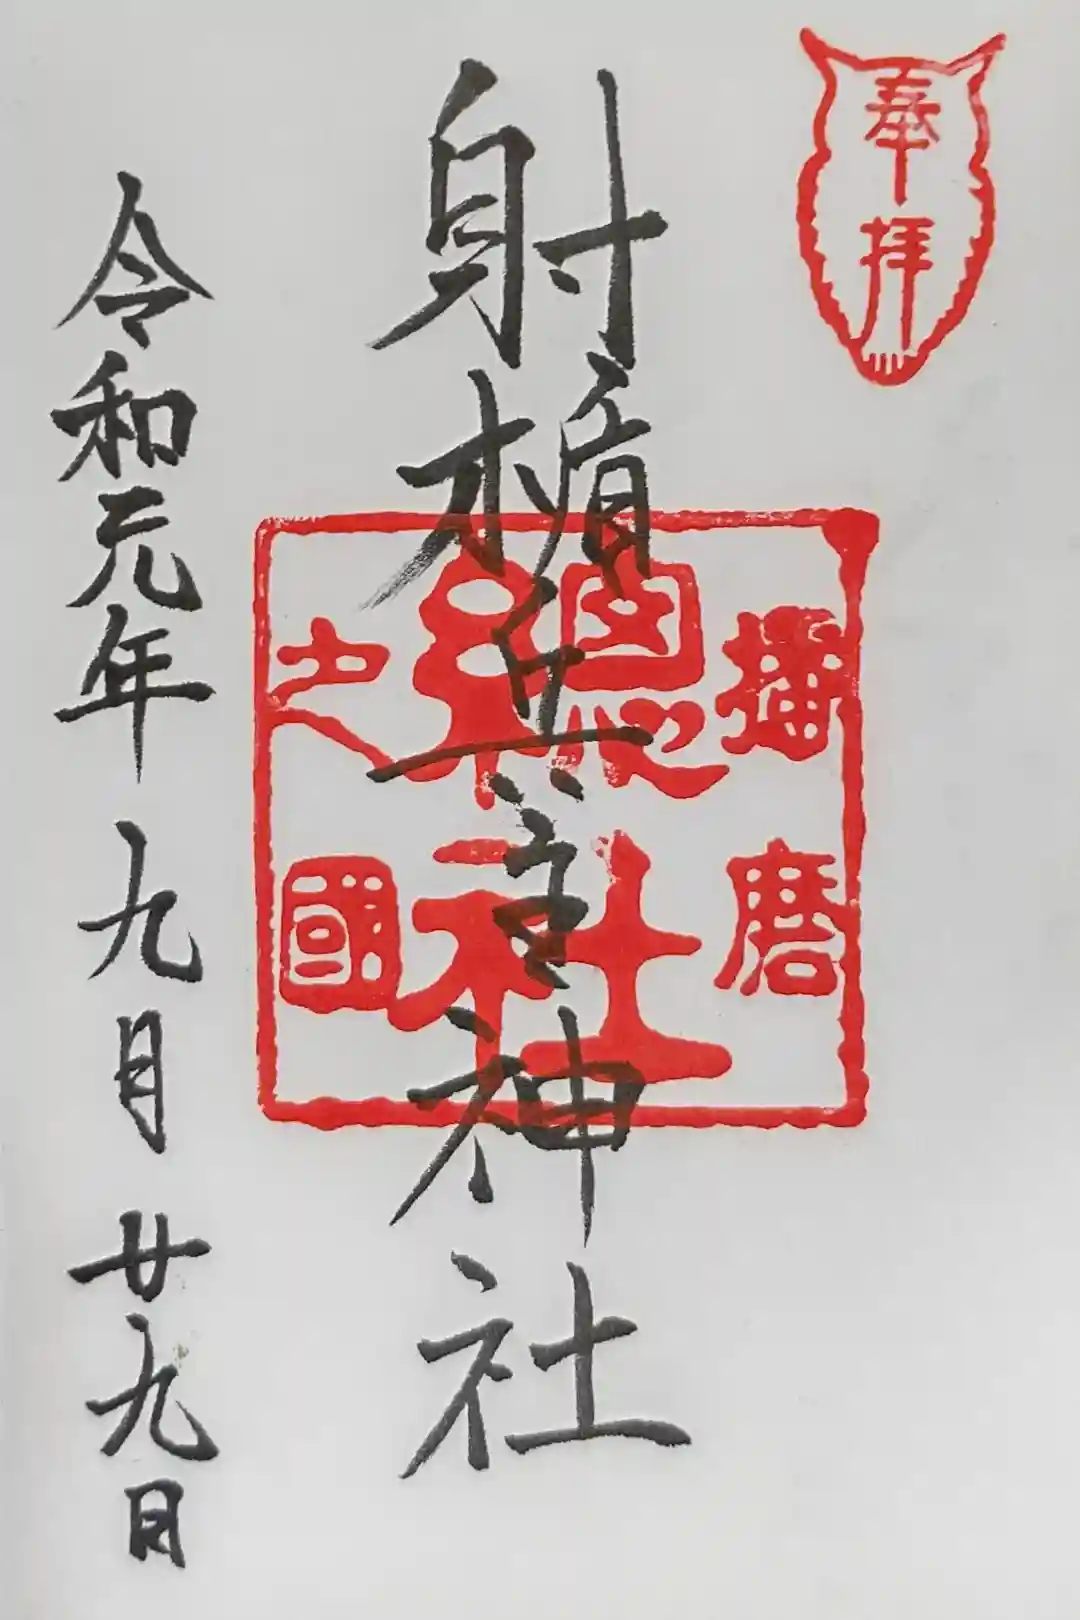 奉拝
射楯兵主神社
播磨
總社
之國
令和元年九月廿九日